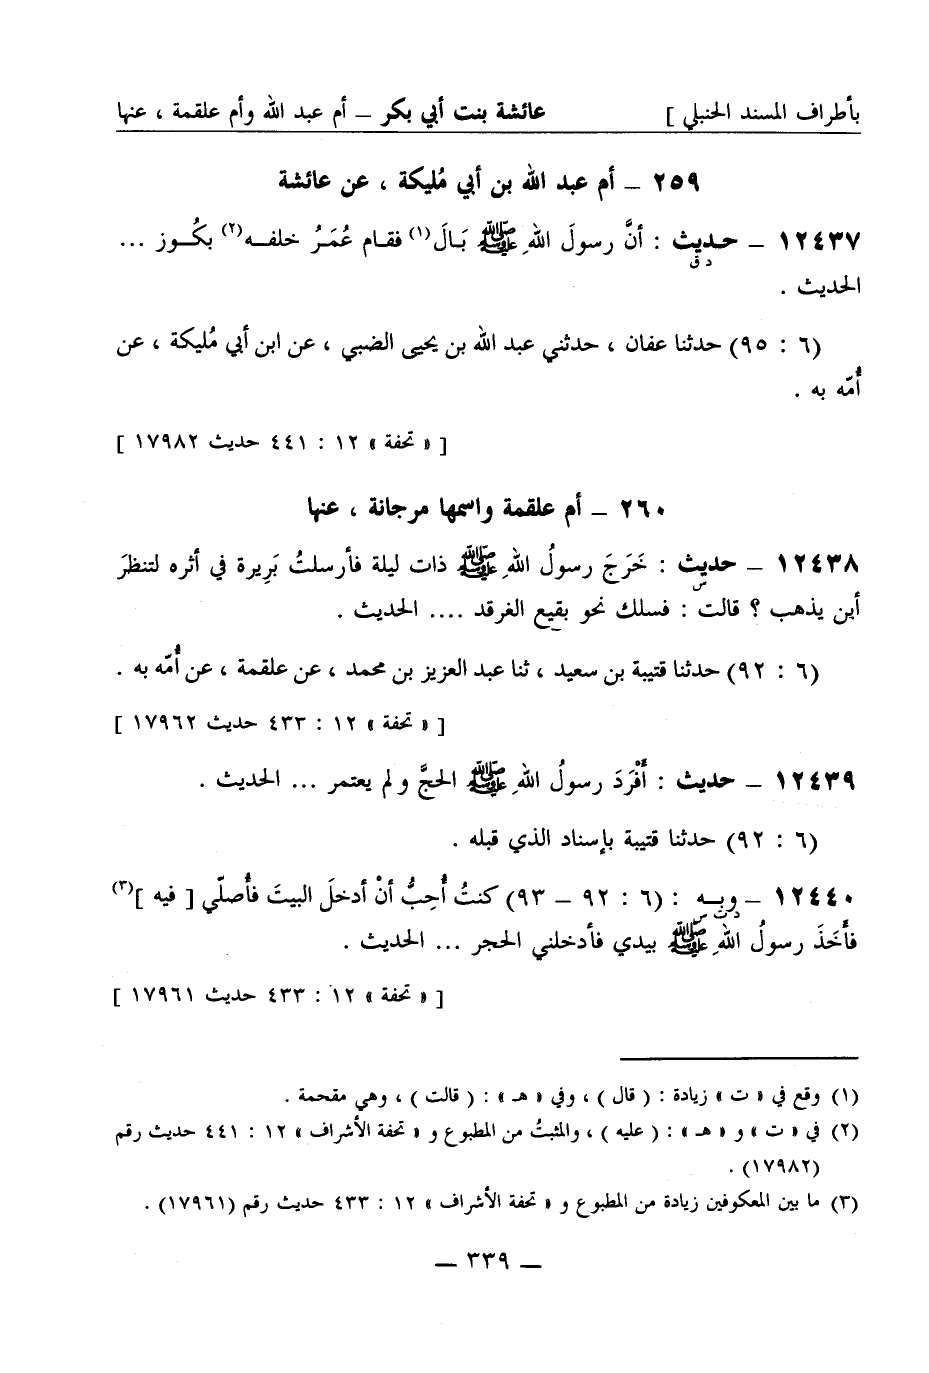 بأطراف المسند الحنبلي ] عائشة بنت أبي بكر – أم عبد الله وأم علقمة ، عنها
٢٥٩ – أم عبد الله بن أبي مُليكة ، عن عائشة
١٢٤٣٧ – حديث : أنَّ رسولَ اللهِ ﷺ بَالَ(١) فقام عُمَرُ خلفه(٢) بكُوز ...
د ق
الحديث .
(٦ : ٩٥) حدثنا عفان ، حدثني عبد الله بن يحيى الضبي ، عن ابن أبي مُليكة ، عن
أُمّه به .
[ « تحفة » ١٢ : ٤٤١ حديث ١٧٩٨٢ ]
٢٦٠ – أم علقمة واسمها مرجانة ، عنها
١٢٤٣٨ – حديث : خَرَجَ رسولُ اللهِ ﷺ ذات ليلة فأرسلتُ بَرِيرة في أثره لتنظرَ
س
أين يذهب ؟ قالت : فسلك نحو بقيع الغرقد .... الحديث .
(٦ : ٩٢) حدثنا قتيبة بن سعيد ، ثنا عبد العزيز بن محمد ، عن علقمة ، عن أُمّه به .
[ « تحفة » ١٢ : ٤٣٣ حديث ١٧٩٦٢ ]
١٢٤٣٩ – حديث : أَفْرَدَ رسولُ اللهِ ﷺ الحجَّ ولم يعتمر ... الحديث .
(٦ : ٩٢) حدثنا قتيبة بإسناد الذي قبله .
١٢٤٤٠ – وبه : (٦ : ٩٢ – ٩٣) كنتُ أُحِبُّ أنْ أدخلَ البيتَ فأُصلّي [ فيه ](٣)
د ت س
فأَخَذَ رسولُ اللهِ ﷺ بيدي فأدخلني الحجر ... الحديث .
[ « تحفة » ١٢ : ٤٣٣ حديث ١٧٩٦١ ]
(١) وقع في « ت » زيادة : ( قال ) ، وفي « هـ » : ( قالت ) ، وهي مقحمة .
(٢) في « ت » و « هـ » : ( عليه ) ، والمثبتُ من المطبوع و « تحفة الأشراف » ١٢ : ٤٤١ حديث رقم
(١٧٩٨٢) .
(٣) ما بين المعكوفين زيادة من المطبوع و « تحفة الأشراف » ١٢ : ٤٣٣ حديث رقم (١٧٩٦١) .
– ٣٣٩ –